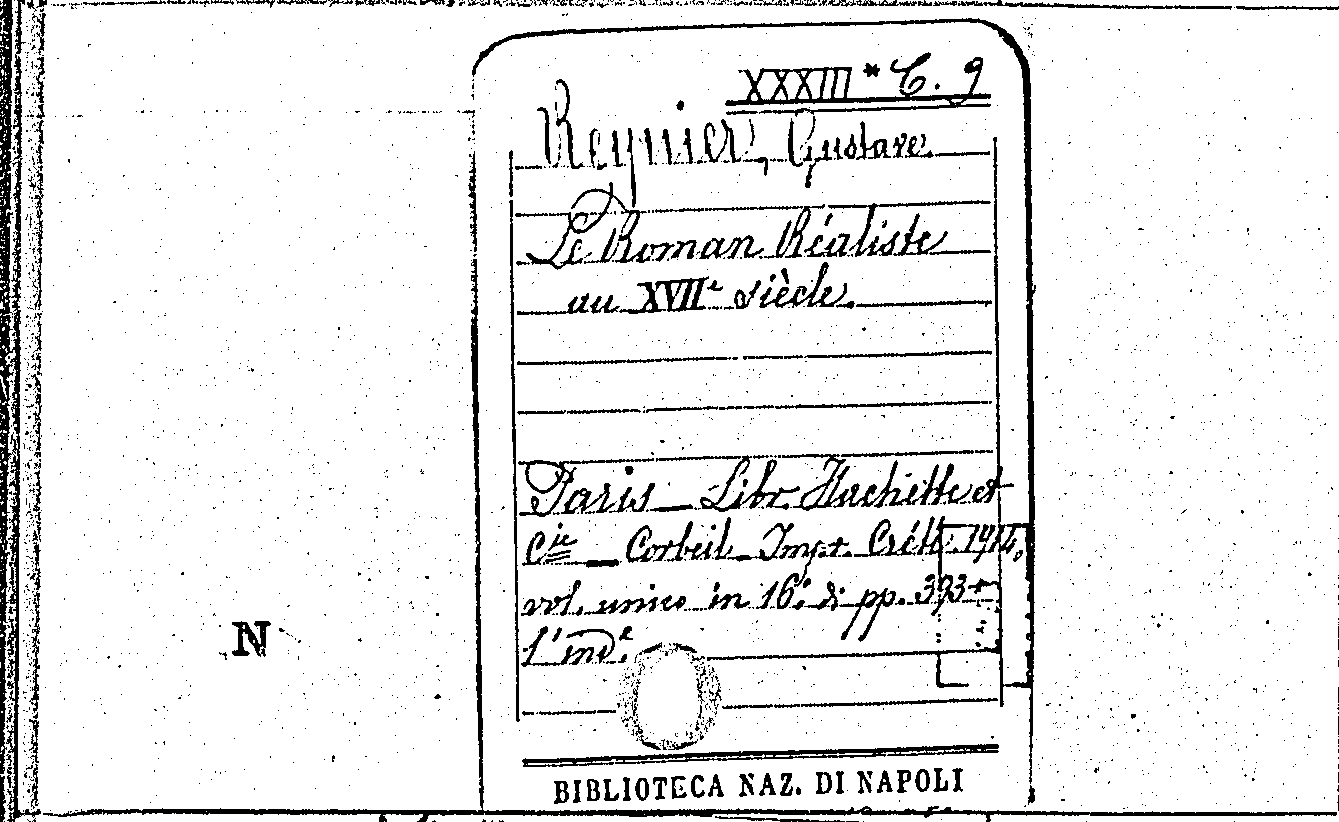 XXXIII * C. 9
Reynier, Gustave.
Le Roman Réaliste
au XVIIe siècle.
Paris – Libr. Hachette et
Cie – Corbeil – Impr. Crété. 1914.
vol. unico in 16.° di pp. 393 +
l'inde.
N
BIBLIOTECA NAZ. DI NAPOLI